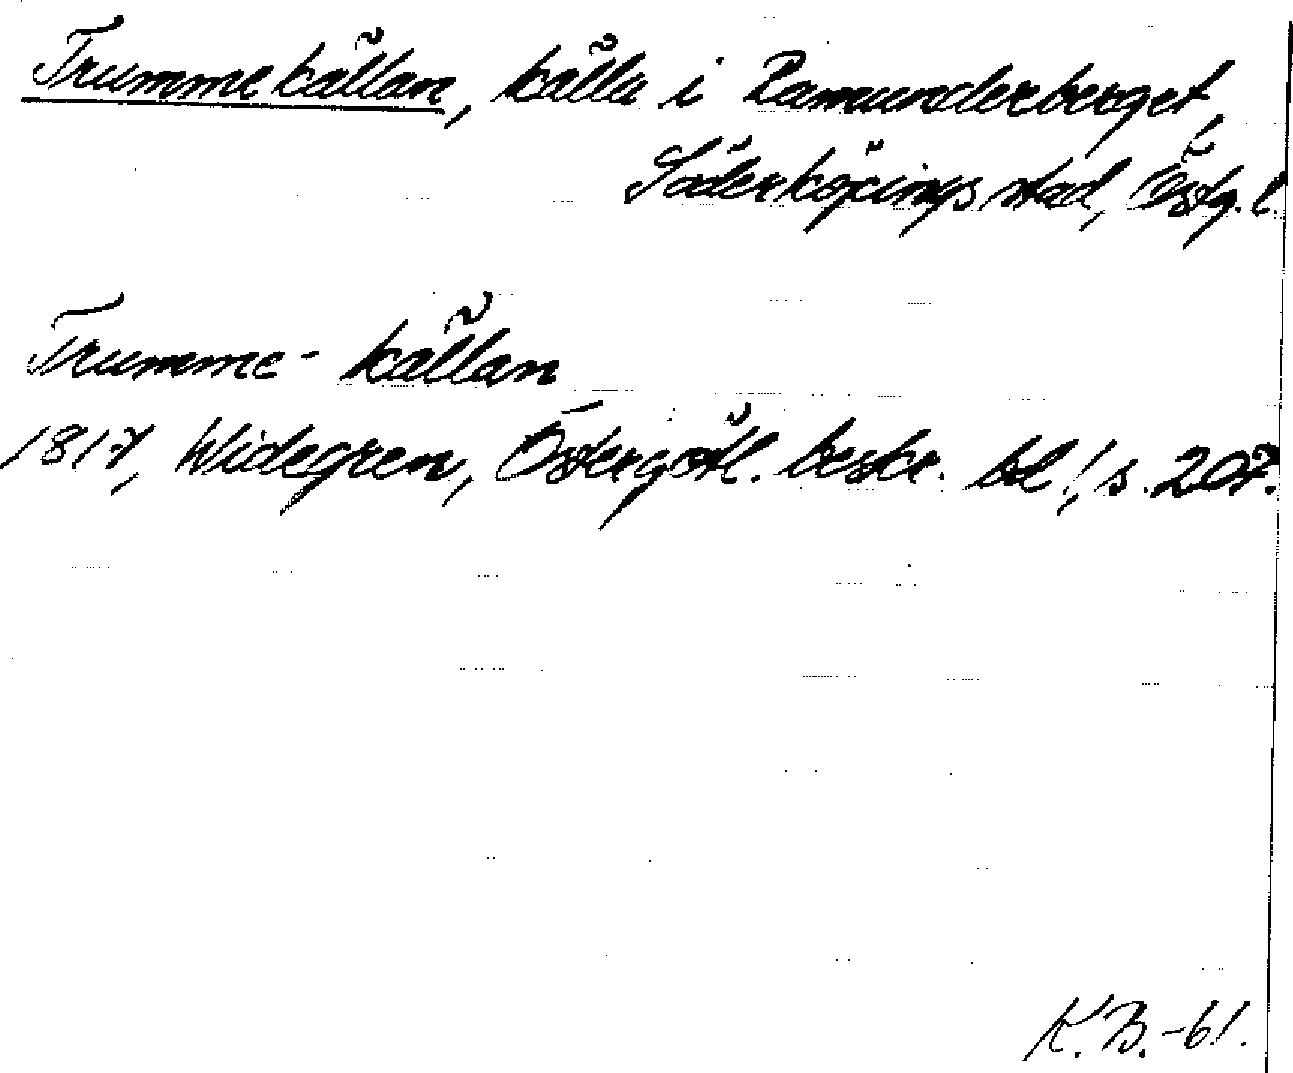 Trummekällan, källa i Ramunderberget,
Söderköpings stad, Östg. l.
Trumme-källan
1817, Widegren, Östergötl. beskr. bd 1, s. 207.
K.B.-61.